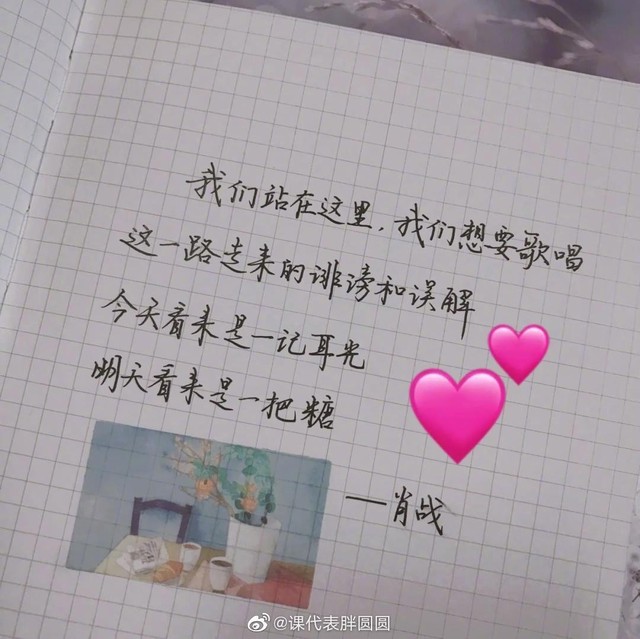 我们站在这里,我们想要歌唱
这一路走来的诽谤和误解
今天看来是一记耳光
明天看来是一把糖
——肖战
@课代表胖圆圆